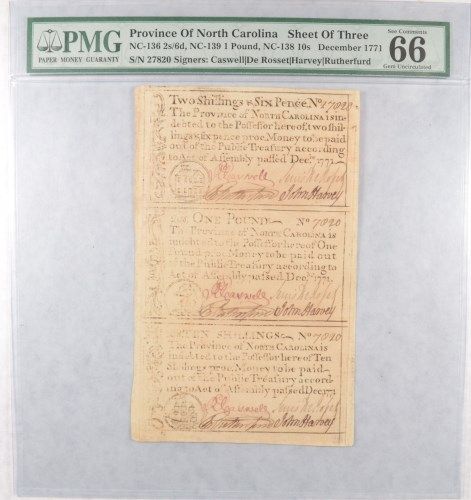 PMG
PAPER MONEY GUARANTY
Province Of North Carolina Sheet Of Three
NC-136 2s/6d, NC-139 1 Pound, NC-138 10s December 1771
S/N 27820 Signers: Caswell|De Rosset|Harvey|Rutherfurd
See Comments
66
Gem Uncirculated
Two Shillings & Six Pence. No 17820
The Province of NORTH CAROLINA is in-
debted to the Possessor hereof, two shil-
lings & six pence proc. Money to be paid
out of the Public Treasury according
to Act of Assembly passed Decr. 1771
R Caswell Lewis De Rosset
Rutherfurd John Harvey
ONE POUND No 7820
The Province of NORTH CAROLINA is
indebted to the Possessor hereof One
Pound proc. Money to be paid out
of the Public Treasury according to
Act of Assembly passed Decr. 1771.
R Caswell Lewis De Rosset
Rutherfurd John Harvey
TEN SHILLINGS No 7820
The Province of NORTH CAROLINA is
indebted to the Possessor here of Ten
Shillings proc. Money to be paid
out of the Public Treasury accord-
ing to Act of Assembly passed Dec. 1771
R Caswell Lewis De Rosset
Rutherfurd John Harvey